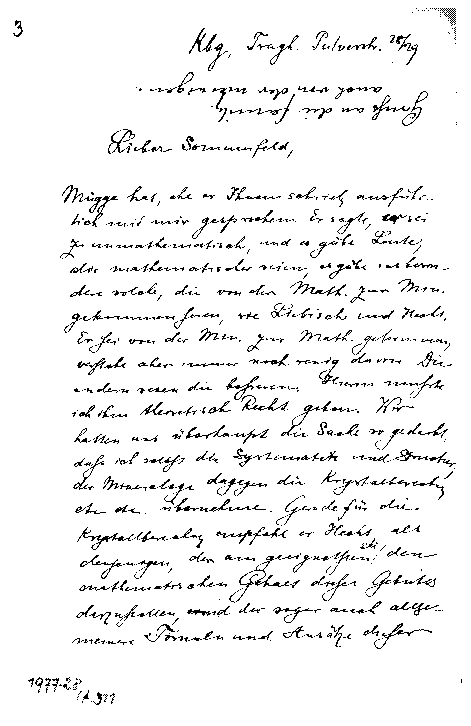 3
Kbg, Tragh. Pulverstr. 28/29
Lieber Sommerfeld,
Mügge hat, ehe er Ihnen schrieb, ausführ-
lich mit mir gesprochen. Er sagte, er sei
zu unmathematisch, und es gäbe Leute,
die mathematischer seien, es gäbe insbeson-
dere solche, die von der Math. zur Min.
gekommen seien, wie Liebisch und Hecht.
Er sei von der Min. zur Math. gekommen,
verstehe aber immer noch wenig davon. Die
andern seien die besseren. Hierin musste
ich ihm theoretisch Recht geben. Wir
hatten uns überhaupt die Sache so gedacht,
dass ich die Systematik und
der Mineralogie dagegen die Krystallberechnung
etc. übernehme. Gerade für die
Krystallberechnung empfahl er Hecht, als
denjenigen, der am geeignetsten sei, den
mathematischen Gehalt dieses Gebietes
darzustellen, und der sogar auch allge-
meinere Formeln und Ansätze dieser
1977-28/A,311